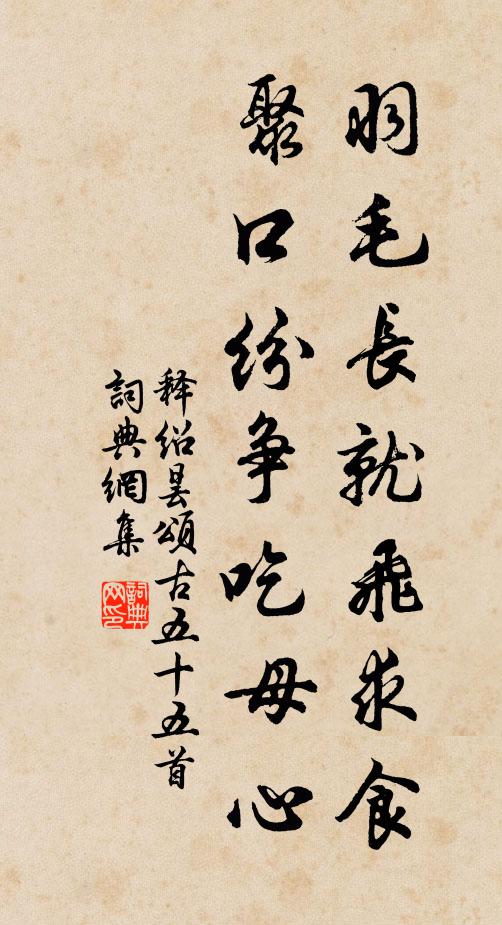 羽毛長就飛求食
聚口紛争吃母心
释绍昙頌古五十五首
詞典網集
詞典网印